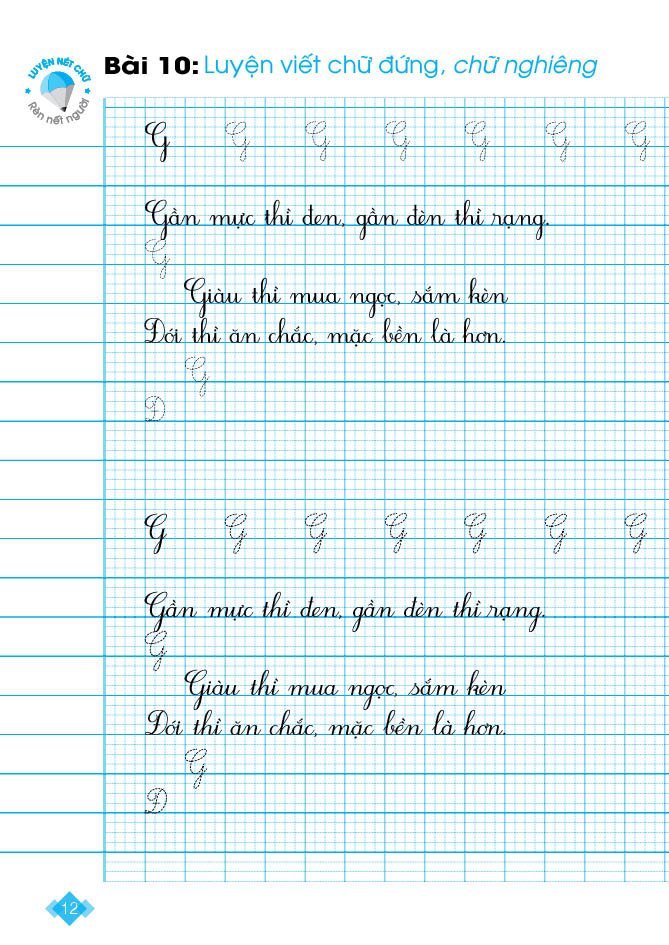 LUYỆN NÉT CHỮ
Rèn nết người
Bài 10: Luyện viết chữ đứng, chữ nghiêng
G G G G G G G
Gần mực thì đen, gần đèn thì rạng.
G
Giàu thì mua ngọc, sắm kèn
Đói thì ăn chắc, mặc bền là hơn.
G
Đ
G G G G G G G
Gần mực thì đen, gần đèn thì rạng.
G
Giàu thì mua ngọc, sắm kèn
Đói thì ăn chắc, mặc bền là hơn.
G
Đ
12